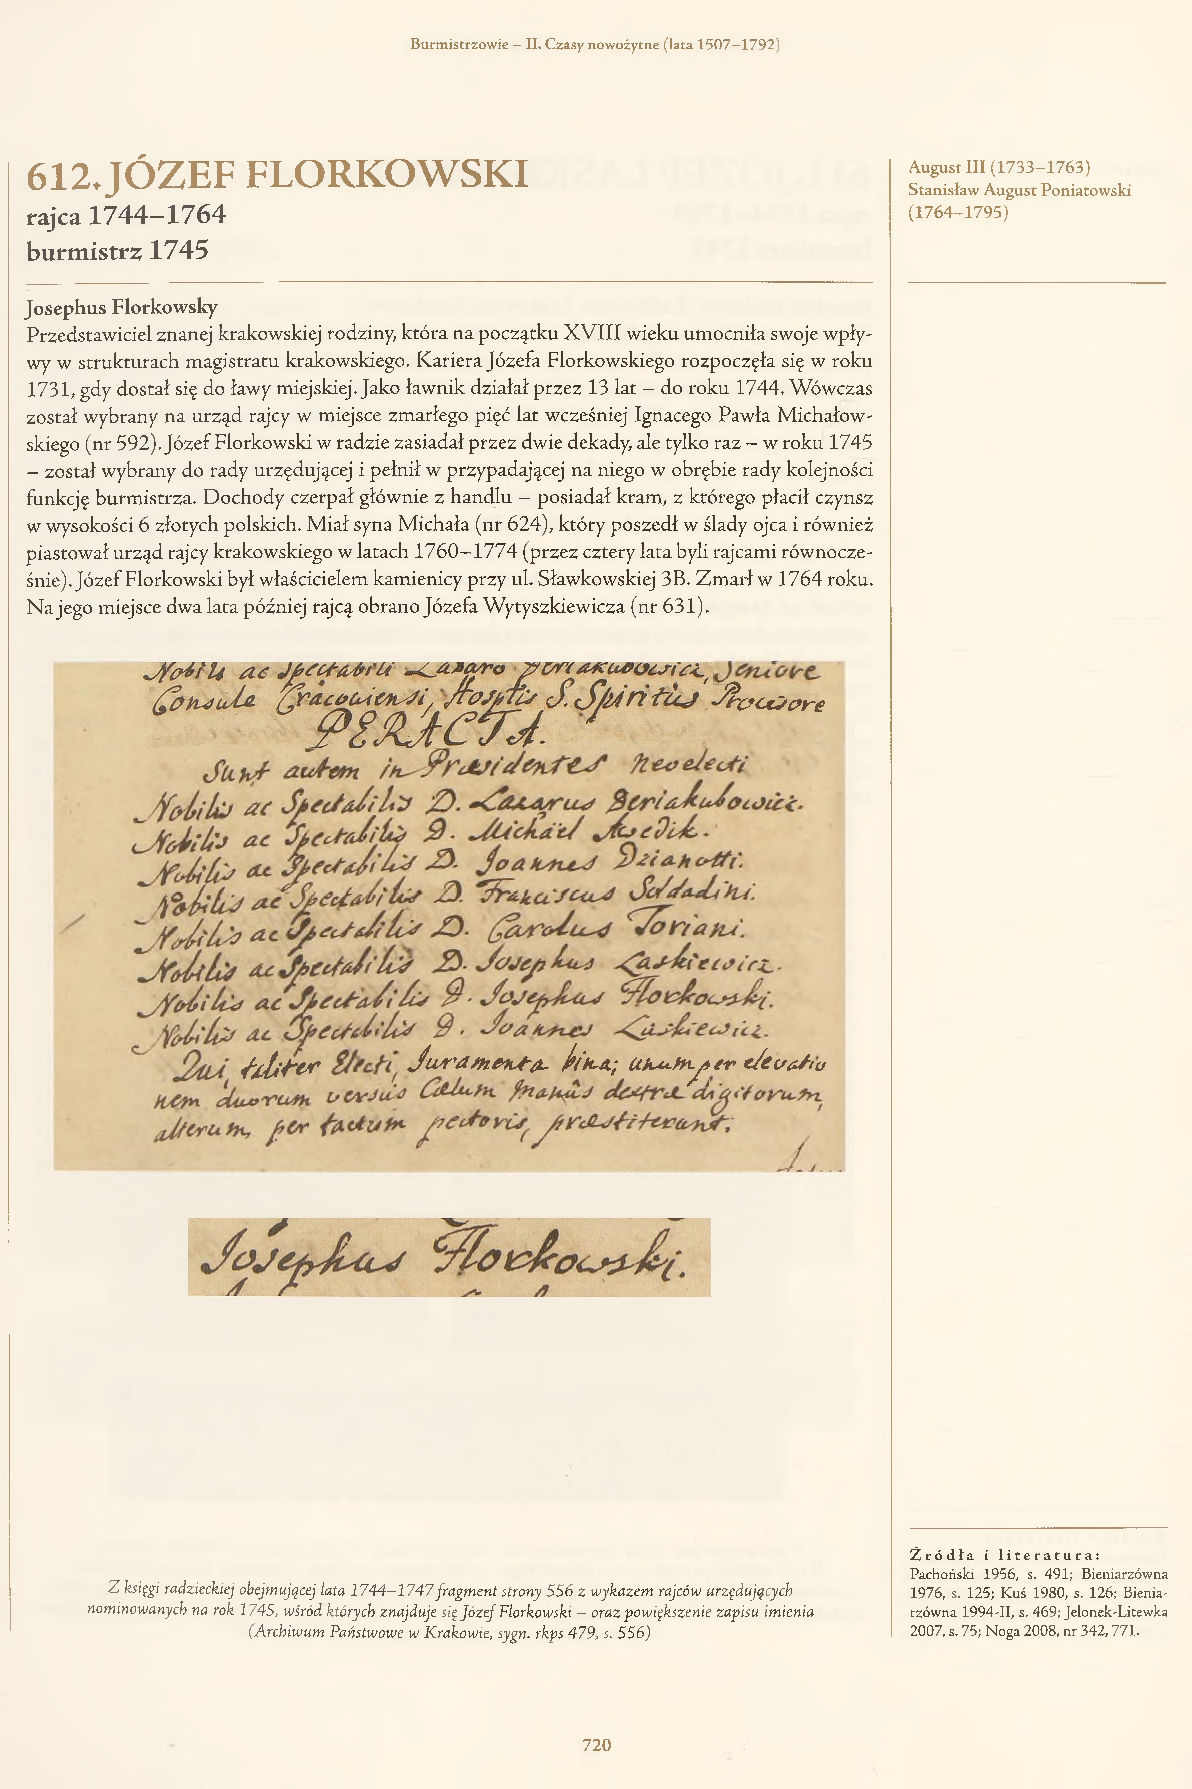 Burmistrzowie – II. Czasy nowożytne (lata 1507–1792)
612. JÓZEF FLORKOWSKI
rajca 1744–1764
burmistrz 1745
August III (1733–1763)
Stanisław August Poniatowski
(1764–1795)
Josephus Florkowsky
Przedstawiciel znanej krakowskiej rodziny, która na początku XVIII wieku umocniła swoje wpły-
wy w strukturach magistratu krakowskiego. Kariera Józefa Florkowskiego rozpoczęła się w roku
1731, gdy dostał się do ławy miejskiej. Jako ławnik działał przez 13 lat – do roku 1744. Wówczas
został wybrany na urząd rajcy w miejsce zmarłego pięć lat wcześniej Ignacego Pawła Michałow-
skiego (nr 592). Józef Florkowski w radzie zasiadał przez dwie dekady, ale tylko raz – w roku 1745
– został wybrany do rady urzędującej i pełnił w przypadającej na niego w obrębie rady kolejności
funkcję burmistrza. Dochody czerpał głównie z handlu – posiadał kram, z którego płacił czynsz
w wysokości 6 złotych polskich. Miał syna Michała (nr 624), który poszedł w ślady ojca i również
piastował urząd rajcy krakowskiego w latach 1760–1774 (przez cztery lata byli rajcami równocze-
śnie). Józef Florkowski był właścicielem kamienicy przy ul. Sławkowskiej 3B. Zmarł w 1764 roku.
Na jego miejsce dwa lata później rajcą obrano Józefa Wytyszkiewicza (nr 631).
Nobili ac Spectabili Lazaro Deriakubowicz, Seniore
Consule Cracoviensi, Hosptis S. Spiritûs Provisore
PERACTA.
Sunt autem in Præsidentes Neoelecti
Nobilis ac Spectabilis D. Lazarus Deriakubowicz.
Nobilis ac Spectabilis D. Michael Awedik.
Nobilis ac Spectabilis D. Joannes Dzianotti.
Nobilis ac Spectabilis D. Franciscus Soldadini.
Nobilis ac Spectabilis D. Carolus Toriani.
Nobilis ac Spectabilis D. Josephus Laskiewicz.
Nobilis ac Spectabilis D. Josephus Florkowski.
Nobilis ac Spectabilis D. Joannes Laskiewicz.
Qui taliter Electi, Juramenta bina; unum per elevatio
nem duorum versus Cælum Manûs dextræ digitorum,
alterum, per tactum pectoris, præstiterunt.
Josephus Florkowski.
Z księgi radzieckiej obejmującej lata 1744–1747 fragment strony 556 z wykazem rajców urzędujących
nominowanych na rok 1745, wśród których znajduje się Józef Florkowski – oraz powiększenie zapisu imienia
(Archiwum Państwowe w Krakowie, sygn. rkps 479, s. 556)
Źródła i literatura:
Pachoński 1956, s. 491; Bieniarzówna
1976, s. 125; Kuś 1980, s. 126; Bienia-
rzówna 1994-II, s. 469; Jelonek-Litewka
2007, s. 75; Noga 2008, nr 342, 771.
720